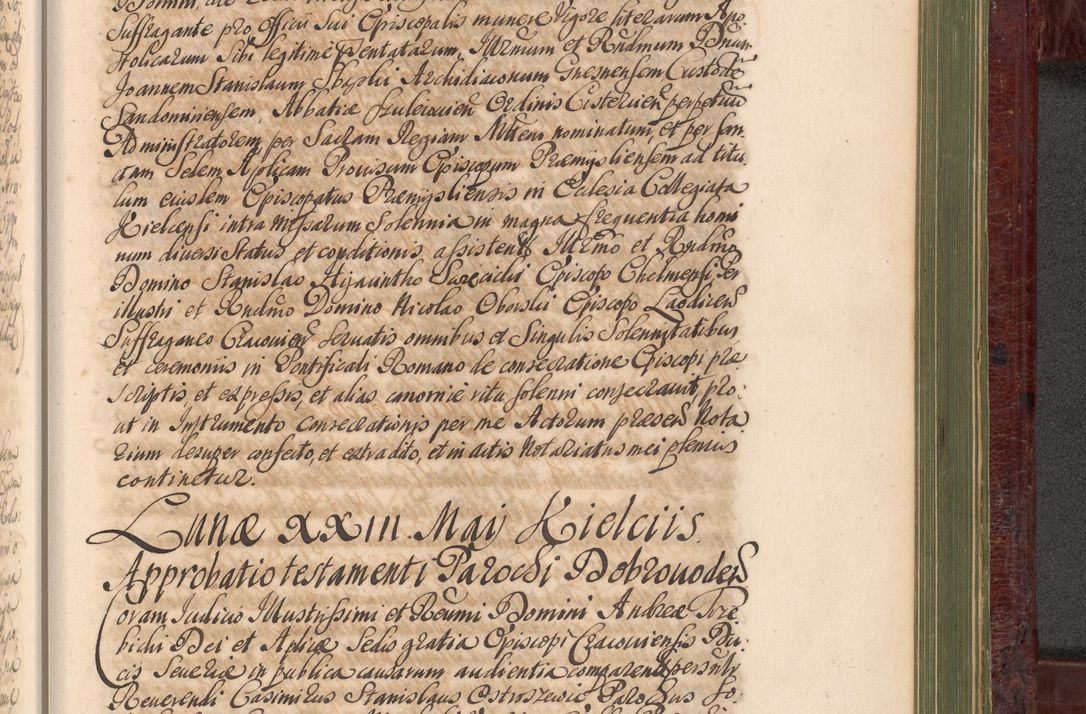 Suffragante pro Officii sui Episcopalis munere Vigore literarum Apo
stolicarum Sibi legitime Pentatarum, Illrmum et Rndmum Dnum
Joannem Stanislaum Sbąski Archidiaconum Gnesnensem Custodē
Sandomiriensem, Abbatiæ Sulejovien Ordinis Cistercien perpetuū
Administratorem, per Sacram Regiam Mttem nominatum, et per San
ctam Sedem Aplicam Provisum Episcopum Præmysliensem ad titu
lum eiusdem Episcopatus Præmysliensis in Eclesia Collegiata
Kielcensi intra Missarum Solennia in magna frequentia homi
num diversi Status et conditionis assistente Illrmo et Rndmo
Domino Stanislao Hijacintho Swięcicki Episcopo Chelmensi, Per
illustri et Rndmo Domino Nicolao Oborski Episcopo Laodicen
Suffraganeo Cracovien servatis omnibus et Singulis Solennitatibus
et ceremoniis in Pontificali Romano de consecratione Episcopi præ
scriptis et expressis, et alias canonicè ritu solenni consecravit, pro
ut in Instrumento Consecrationis per me Actorum præsen Nota
rium desuper confecto, et extradito, et in actis Notariatus mei plenius
continetur.
Lunæ XXIII Maij Kielciis.
Approbatio testamenti Parochi Dobrovoden
Coram Judicio Illustrissimi et Reumi Domini Andreæ Trze
bicki Dei et Aplicæ Sedis gratia Episcopi Cracoviensis Du
cis Severiæ in publica causarum audientia comparens personalr
Reverendi Casimirus Stanislaus Ostroszewic Parochus Do